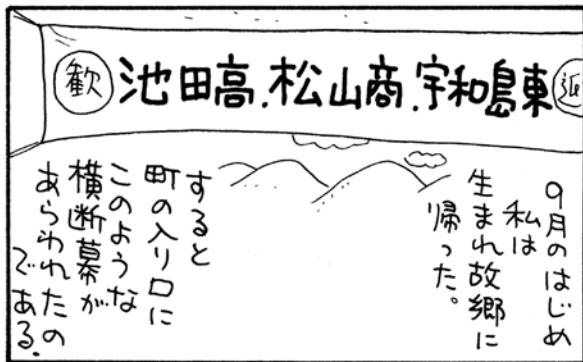 歓 池田高.松山商.宇和島東
9月のはじめ
私は
生まれ故郷に
帰った。
すると
町の入り口に
このような
横断幕が
あらわれたの
である.